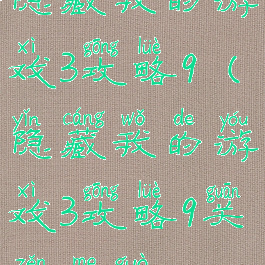 隐藏我的游
xì gōng lüè
戏3攻略9（
yǐn cáng wǒ de yóu
隐藏我的游
xì gōng lüè guān
戏3攻略9关
zěn me guò